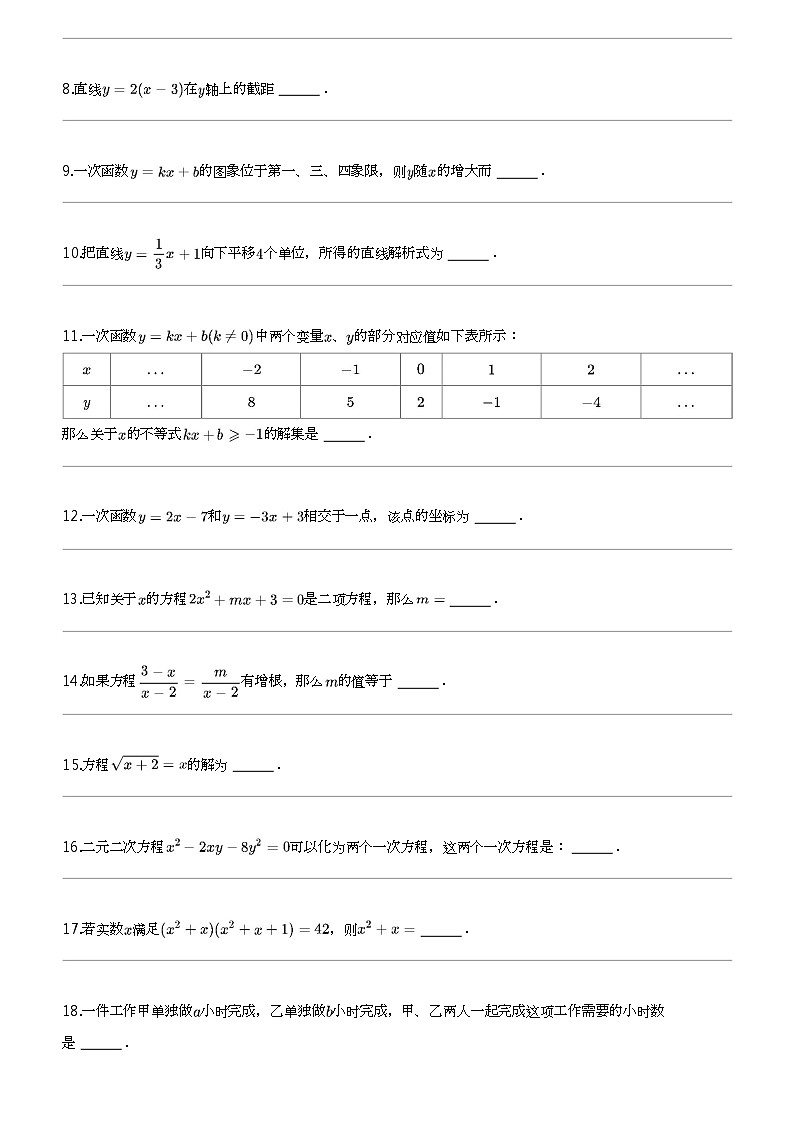 8.直线y = 2(x − 3)在y轴上的截距 ______ .
9.一次函数y = kx + b的图象位于第一、三、四象限，则y随x的增大而 ______ .
10.把直线y = \frac{1}{3}x + 1向下平移4个单位，所得的直线解析式为 ______ .
11.一次函数y = kx + b(k ≠ 0)中两个变量x、y的部分对应值如下表所示：
x … −2 −1 0 1 2 …
y … 8 5 2 −1 −4 …
那么关于x的不等式kx + b ⩾ −1的解集是 ______ .
12.一次函数y = 2x − 7和y = −3x + 3相交于一点，该点的坐标为 ______ .
13.已知关于x的方程2x² + mx + 3 = 0是二项方程，那么m = ______ .
14.如果方程\frac{3 − x}{x − 2} = \frac{m}{x − 2}有增根，那么m的值等于 ______ .
15.方程√(x + 2) = x的解为 ______ .
16.二元二次方程x² − 2xy − 8y² = 0可以化为两个一次方程，这两个一次方程是： ______ .
17.若实数x满足(x² + x)(x² + x + 1) = 42，则x² + x = ______ .
18.一件工作甲单独做a小时完成，乙单独做b小时完成，甲、乙两人一起完成这项工作需要的小时数
是 ______ .